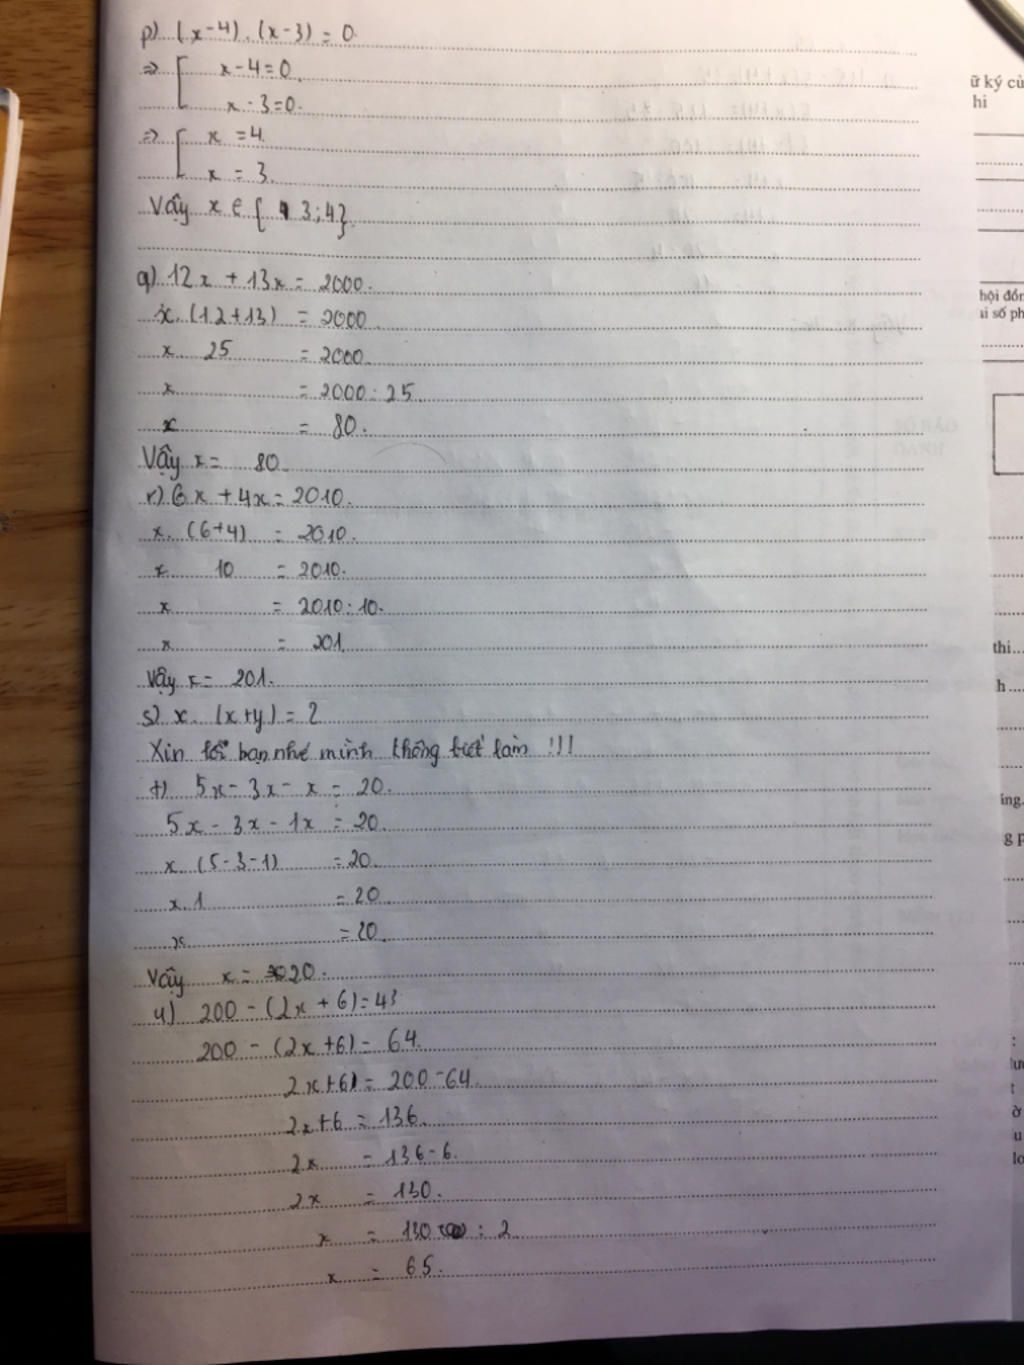 p) (x-4).(x-3) = 0.
=> [ x-4=0.
x-3=0.
=> [ x = 4.
x = 3.
Vậy x ∈ { 3;4}.
q) 12x + 13x = 2000.
x.(12+13) = 2000
x 25 = 2000
x = 2000:25
x = 80.
Vậy x = 80
r) 6x + 4x = 2010.
x.(6+4) = 2010.
x 10 = 2010.
x = 2010:10.
x = 201
Vậy x = 201.
s) x.(x+y) = 2
Xin lỗi bạn nhé mình không biết làm !!!
t) 5x - 3x - x = 20.
5x - 3x - 1x = 20
x (5-3-1) = 20
x.1 = 20
x = 20
Vậy x = 20.
u) 200 - (2x + 6) = 4³
200 - (2x+6) = 64.
2x+6) = 200-64
2x+6 = 136
2x = 136-6.
2x = 130.
x = 130 : 2
x = 65.
ữ ký củ
hi
hội đồn
ai số ph
thi...
h....
ing.
g p
:
t
ở
u
lo